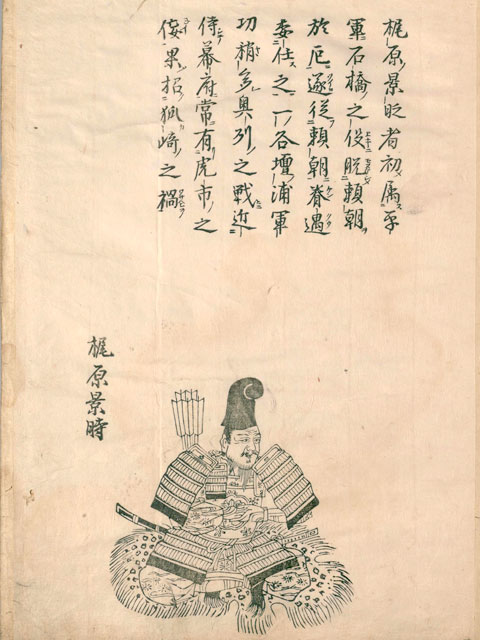 梶原景旹者初属平
軍石橋之役脱頼朝
於厄遂従頼朝眷遇
委任之一谷壇浦軍
功稍多奥列之戦近
侍幕府常有虎市之
侫果招狐崎之禍
梶原景時